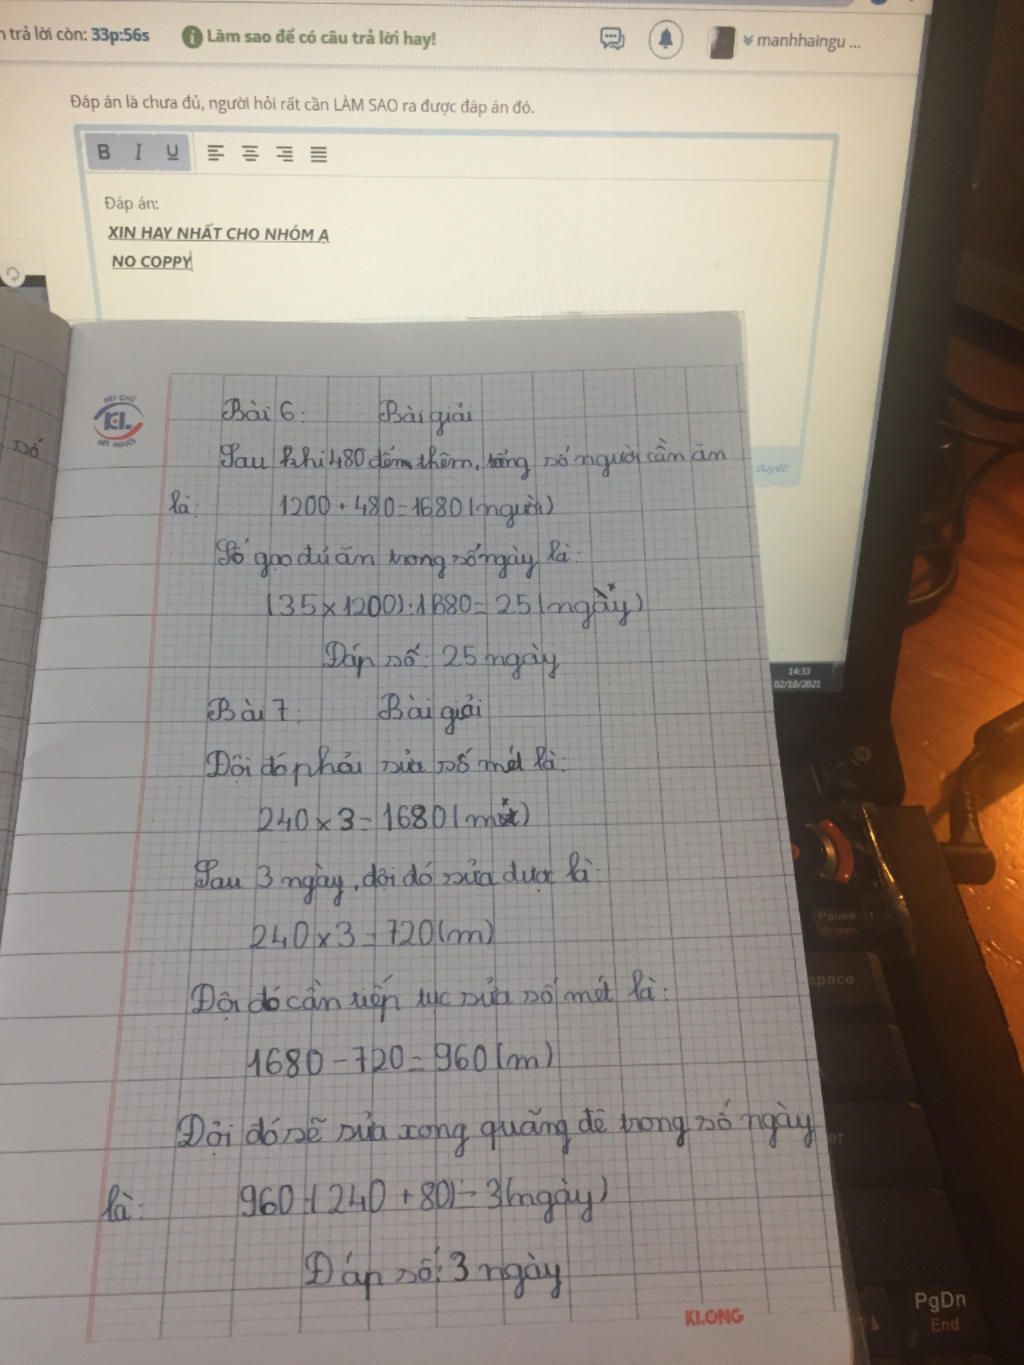 n trả lời còn: 33p:56s
Làm sao để có câu trả lời hay!
manhhaingu ...
Đáp án là chưa đủ, người hỏi rất cần LÀM SAO ra được đáp án đó.
B I U
Đáp án:
XIN HAY NHẤT CHO NHÓM Ạ
NO COPPY
duyệt!
14:33
02/10/2021
số
NÉT CHỮ
KL
NẾT NGƯỜI
Bài 6: Bài giải
Sau khi 480 đếm thêm, tổng số người cần ăn
là: 1200 + 480 = 1680 (người)
Số gạo đủ ăn trong số ngày là:
(35 x 1200) : 1680 = 25 (ngày)
Đáp số: 25 ngày
Bài 7: Bài giải
Đội đó phải sửa số mét là:
240 x 3 = 1680 (m)
Sau 3 ngày, đội đó sửa được là:
240 x 3 = 720 (m)
Đội đó cần tiếp tục sửa số mét là:
1680 - 720 = 960 (m)
Đội đó sẽ sửa xong quãng đê trong số ngày
là: 960 : (240 + 80) = 3 (ngày)
Đáp số: 3 ngày
KLONG
Pause
Break
space
PgDn
End